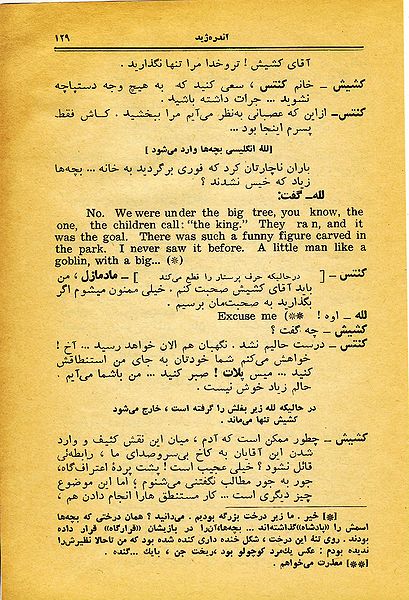 ۱۲۹ آندره‌ژید
آقای کشیش ! تروخدا مرا تنها نگذارید .
کشیش ـ خانم کنتس ، سعی کنید که به هیچ وجه دستپاچه
نشوید ... جرات داشته باشید .
کنتس ـ ازاین که عصبانی به‌نظر می‌آیم مرا ببخشید . کـاش فقط
پسرم اینجا بود ...
[لله انگلیسی بچه‌ها وارد می‌شود ]
باران ناچارتان کرد که فوری برگردید به خانه ... بچه‌ها
زیاد که خیس نشدند ؟
لله ـ گفت:
No. We were under the big tree, you know, the
one, the children call: "the king." They ran, and it
was the goal. There was such a funny figure carved in
the park. I never saw it before. A little man like a
goblin, with a big... (*)
کنتس ـ [ درحالیکه حرف پرستار را قطع می‌کند ] ـ مادمازل ، من
باید آقای کشیش صحبت کنم . خیلی ممنون میشوم اگر
بگذارید به صحبت‌مان برسیم .
لله ـ اوه ! Excuse me (**)
کشیش ـ چه گفت ؟
کنتس ـ درست حالیم نشد . نگهبان هم الان خواهد رسید ... آخ !
خواهش می‌کنم شما خودتان به جای من استنطاقش
کنید ... میس پلات ! صبر کنید ... من باشما می‌آیم .
حالم زیاد خوش نیست .
در حالیکه لله زیر بغلش را گرفته است ، خارج می‌شود
کشیش تنها می‌ماند .
کشیش ـ چطور ممکن است که آدم ، میان این نقش کثیف و وارد
شدن این آقایان به کاخ بی‌سروصدای ما ، رابطه‌ئی
قائل نشود ؟ خیلی عجیب است ! پشت پردهٔ اعتراف‌گاه،
جور به جور مطالب نگفتنی می‌شنوم ؛ اما این موضوع
چیز دیگری است ... کار مستنطق هارا انجام دادن هم ،
[*] خیر . ما زیر درخت بزرگه بودیم . می‌دانید ؟ همان درختی که بچه‌ها
اسمش را «پادشاه»گذاشته‌اند ... بچه‌ها،آن‌را در بازیشان «قرارگاه» قرار داده
بودند . روی تنهٔ این درخت ، شکل خنده داری کنده شده بود که من تاحالا نظیرش‌را
ندیده بودم : عکس یک‌مرد کوچولو بود ،ریخت جن ، بایک ...گنده .
[**] معذرت می‌خواهم .